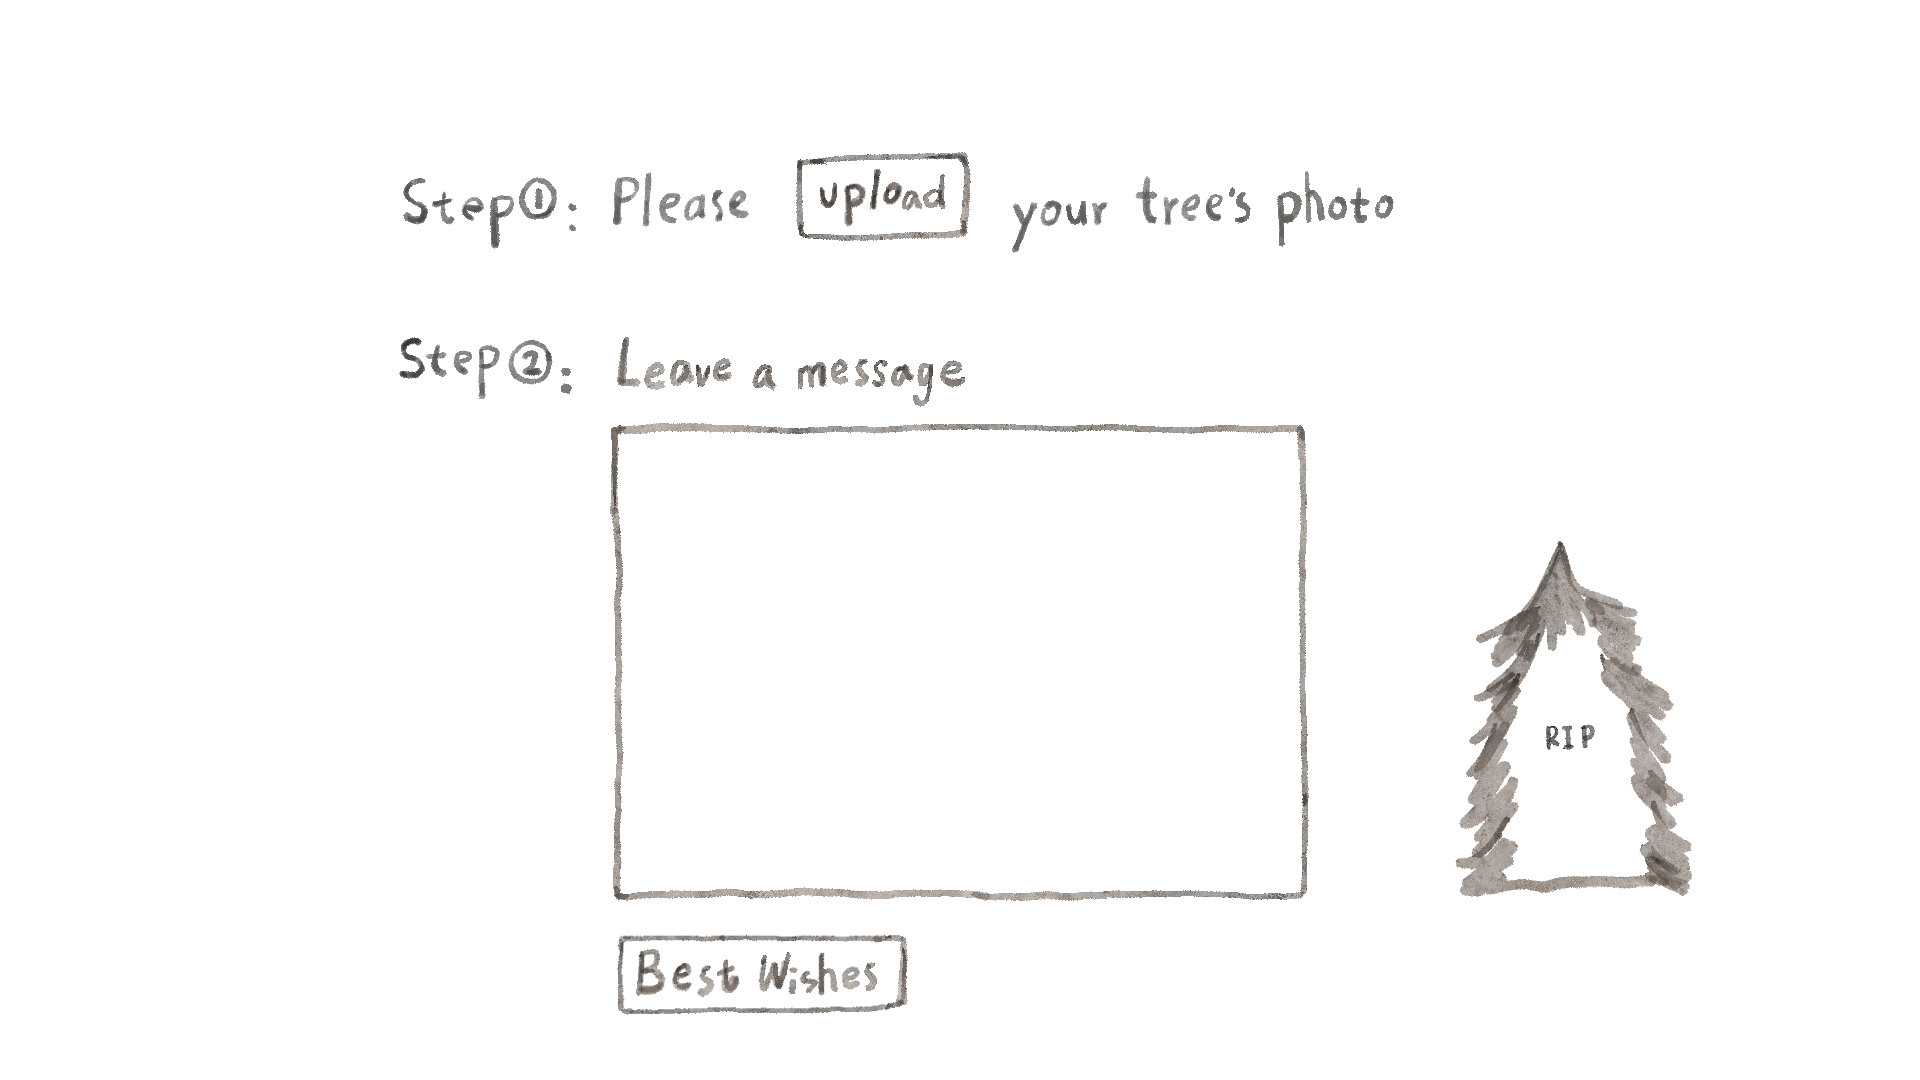 Step①: Please upload your tree's photo
Step②: Leave a message
RIP
Best Wishes